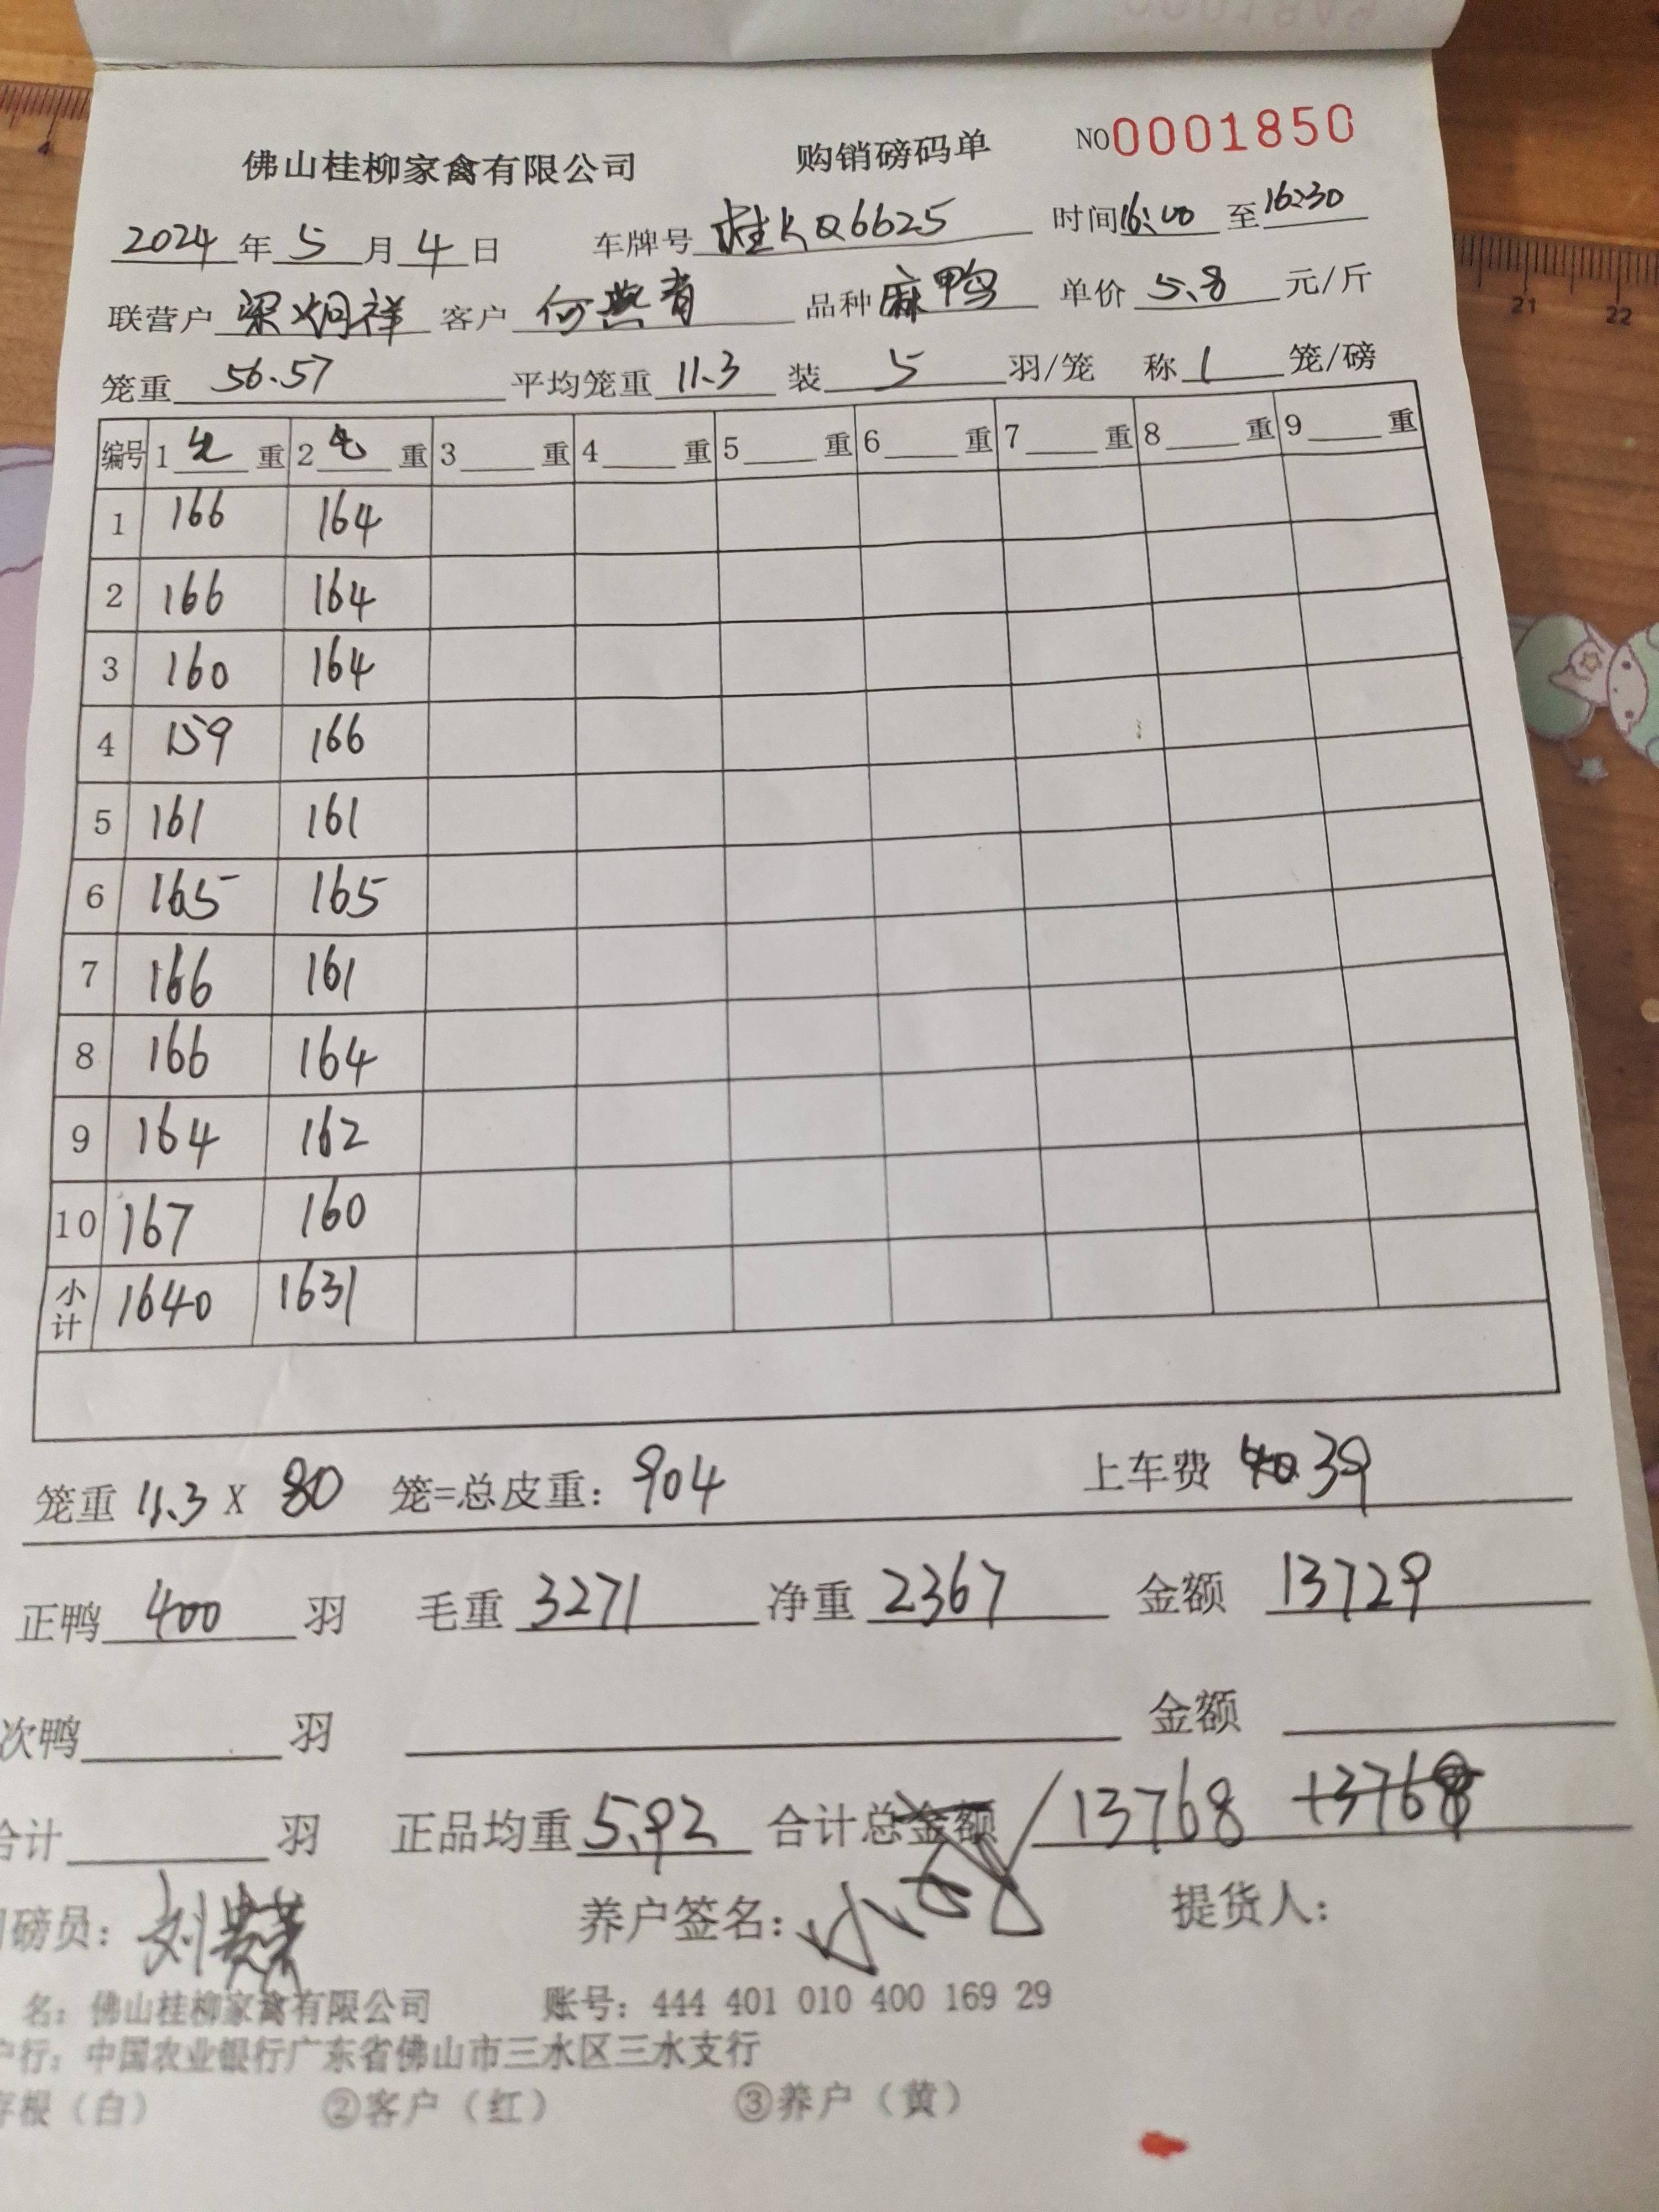 佛山桂柳家禽有限公司 购销磅码单 NO0001850
2024年5月4日 车牌号桂KQ6625 时间16:00至16:30
联营户梁炯祥 客户何燕青 品种麻鸭 单价5.8元/斤
笼重56.57 平均笼重11.3 装5羽/笼 称1笼/磅
编号 1 毛 重 2 毛 重 3 重 4 重 5 重 6 重 7 重 8 重 9 重
1 166 164
2 166 164
3 160 164
4 159 166
5 161 161
6 165 165
7 166 161
8 166 164
9 164 162
10 167 160
小计 1640 1631
笼重 11.3 X 80 笼=总皮重: 904 上车费 39
正鸭 400 羽 毛重 3271 净重 2367 金额 13729
次鸭 羽 金额
合计 羽 正品均重 5.92 合计总金额 13768 13768
磅员: 养户签名: 提货人:
名: 佛山桂柳家禽有限公司 账号: 444 401 010 400 169 29
户行: 中国农业银行广东省佛山市三水区三水支行
存根(白) ②客户(红) ③养户(黄)